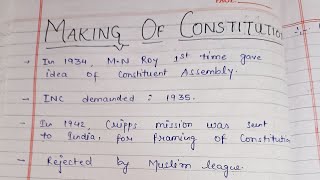 MAKING OF CONSTITUTION
- In 1934, M.N Roy 1st time gave
idea of Constituent Assembly.
- INC demanded : 1935.
- In 1942, Cripps mission was sent
to India, for framing of Constitutio
- Rejected by Muslim league.